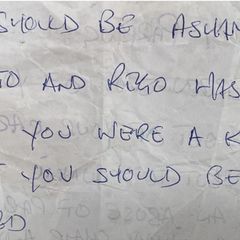 SHOULD BE ASHAM
TO AND RIZO WAS
YOU WERE A K
YOU SHOULD BE
ED